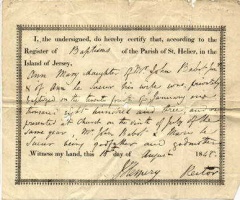 I, the undersigned, do hereby certify that, according to the
Register of Baptisms of the Parish of St. Helier, in the
Island of Jersey,
Ann Mary daughter of Mr John
& of Ann Le Sueur his wife was privately
baptized on the twenty fourth of January one
thousand eight hundred and three and was
presented at Church on the ninth of July of the
same year, Mr John &
Sueur being godfather and godmother
Witness my hand, this day of August 1845.
Rector